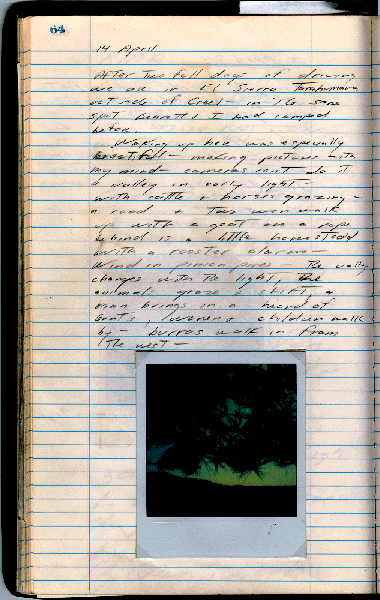 64
14 April
After two full days of driving
we are in El Sierra Tarahumara
outside of Creel – in the same
spot Bennett & I had camped
before.
Waking up here was especially
beautiful – making pictures with
my mind – cameras can't do it
a valley in early light –
with cattle & horses grazing –
a road & two men walk
up with a goat on a rope
behind is a little homestead
with a rooster alarm –
wind in pines – The valley
changes with the light. The
animals graze & shift, a
man brings in a herd of
goats, women & children walk
by – burros walk in from
the west –